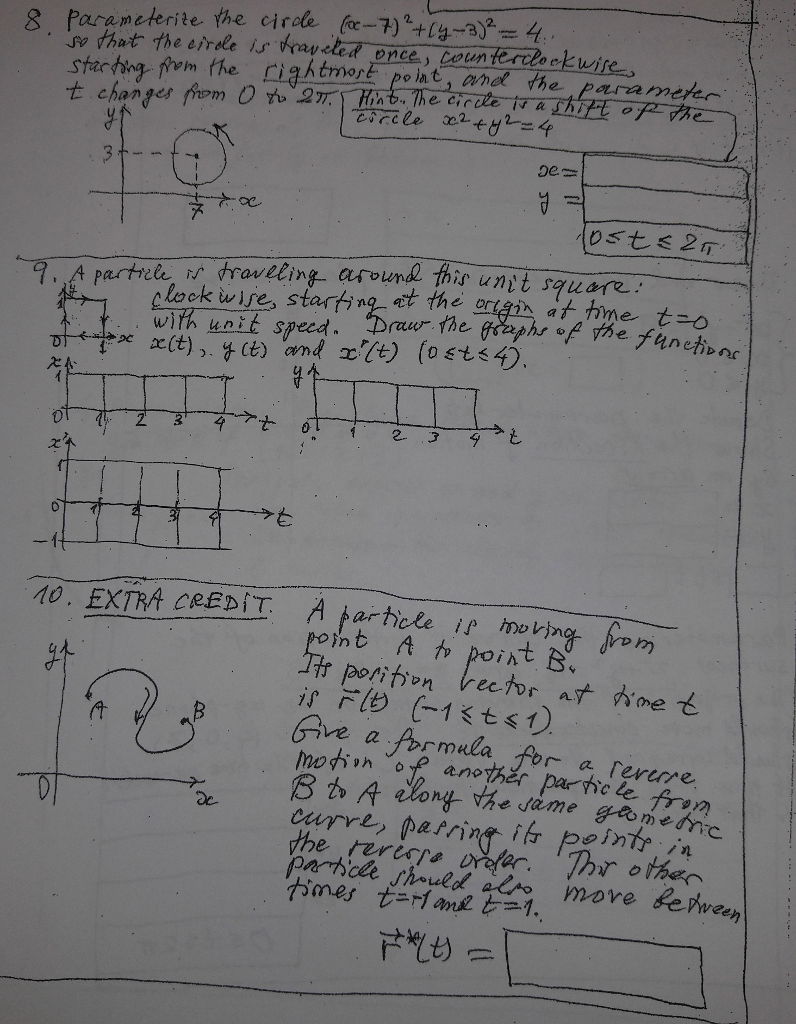 8. Parameterize the circle (x-7)²+(y-3)²=4.
so that the circle is traveled once, counterclockwise,
starting from the rightmost point, and the parameter
t changes from 0 to 2π.
Hint. The circle is a shift of the
circle x²+y²=4
y
3
7
x
x=
y=
0≤t≤2π
9. A particle is traveling around this unit square:
clockwise, starting at the origin at time t=0
with unit speed. Draw the graphs of the functions
x(t), y(t) and x'(t) (0≤t≤4).
y
1
0
1
x
x
1
0 1 2 3 4 t
y
1
0 1 2 3 4 t
x'
1
0 1 2 3 4 t
-1
10. EXTRA CREDIT.
A particle is moving from
point A to point B.
Its position vector at time t
is r⃗(t) (-1≤t≤1).
Give a formula for a reverse
motion of another particle from
B to A along the same geometric
curve, passing its points in
the reverse order. This other
particle should also move between
times t=-1 and t=1.
y
A
B
0
x
r⃗*(t) =